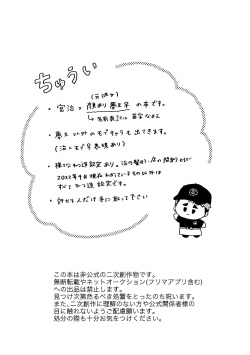 ちゅうい
(元彼女)
・宮治と顔あり夢主 の本です。
↳名前表記に苗字なまえ
・夢主以外のモブキャラも出てきます。
(治とモブ子表現あり)
・様々なわ造設定あり。治の髪型、店の間取りetc
2022年9月現在わかっているもの以外は
すべてわつ造設定です。
・許せる人だけ手に取って下さい
この本は非公式の二次創作物です。
無断転載やネットオークション(フリマアプリ含む)
への出品は禁止します。
見つけ次第然るべき処置をとったのち呪います。
また、二次創作に理解のない方や公式関係者様の
目に触れないようご配慮願います。
処分の際も十分お気をつけください。